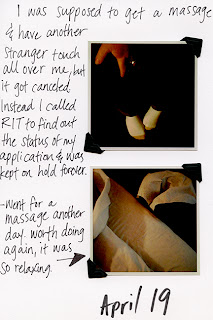 I was supposed to get a massage
& have another
stranger touch
all over me, but
it got canceled.
Instead I called
RIT to find out
the status of my
application & was
kept on hold forever.
-Went for a
massage another
day. worth doing
again, it was
so relaxing.
April 19